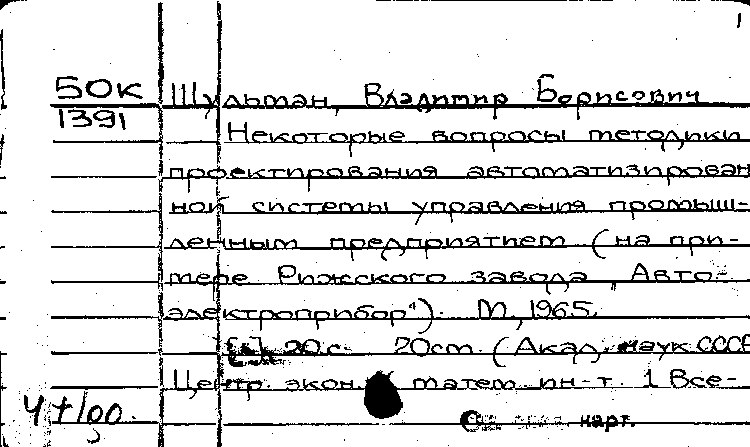 1
50к
1391
Шульман, Владимир Борисович
Некоторые вопросы методики
проектирования автоматизирован
ной системы управления промыш-
ленным предприятием (на при-
мере Рижского завода „Авто-
электроприбор"). М., 1965.
20 с. 20 см. (Акад. наук СССР
Центр. экон. матем. ин-т. 1 Все-
карт.